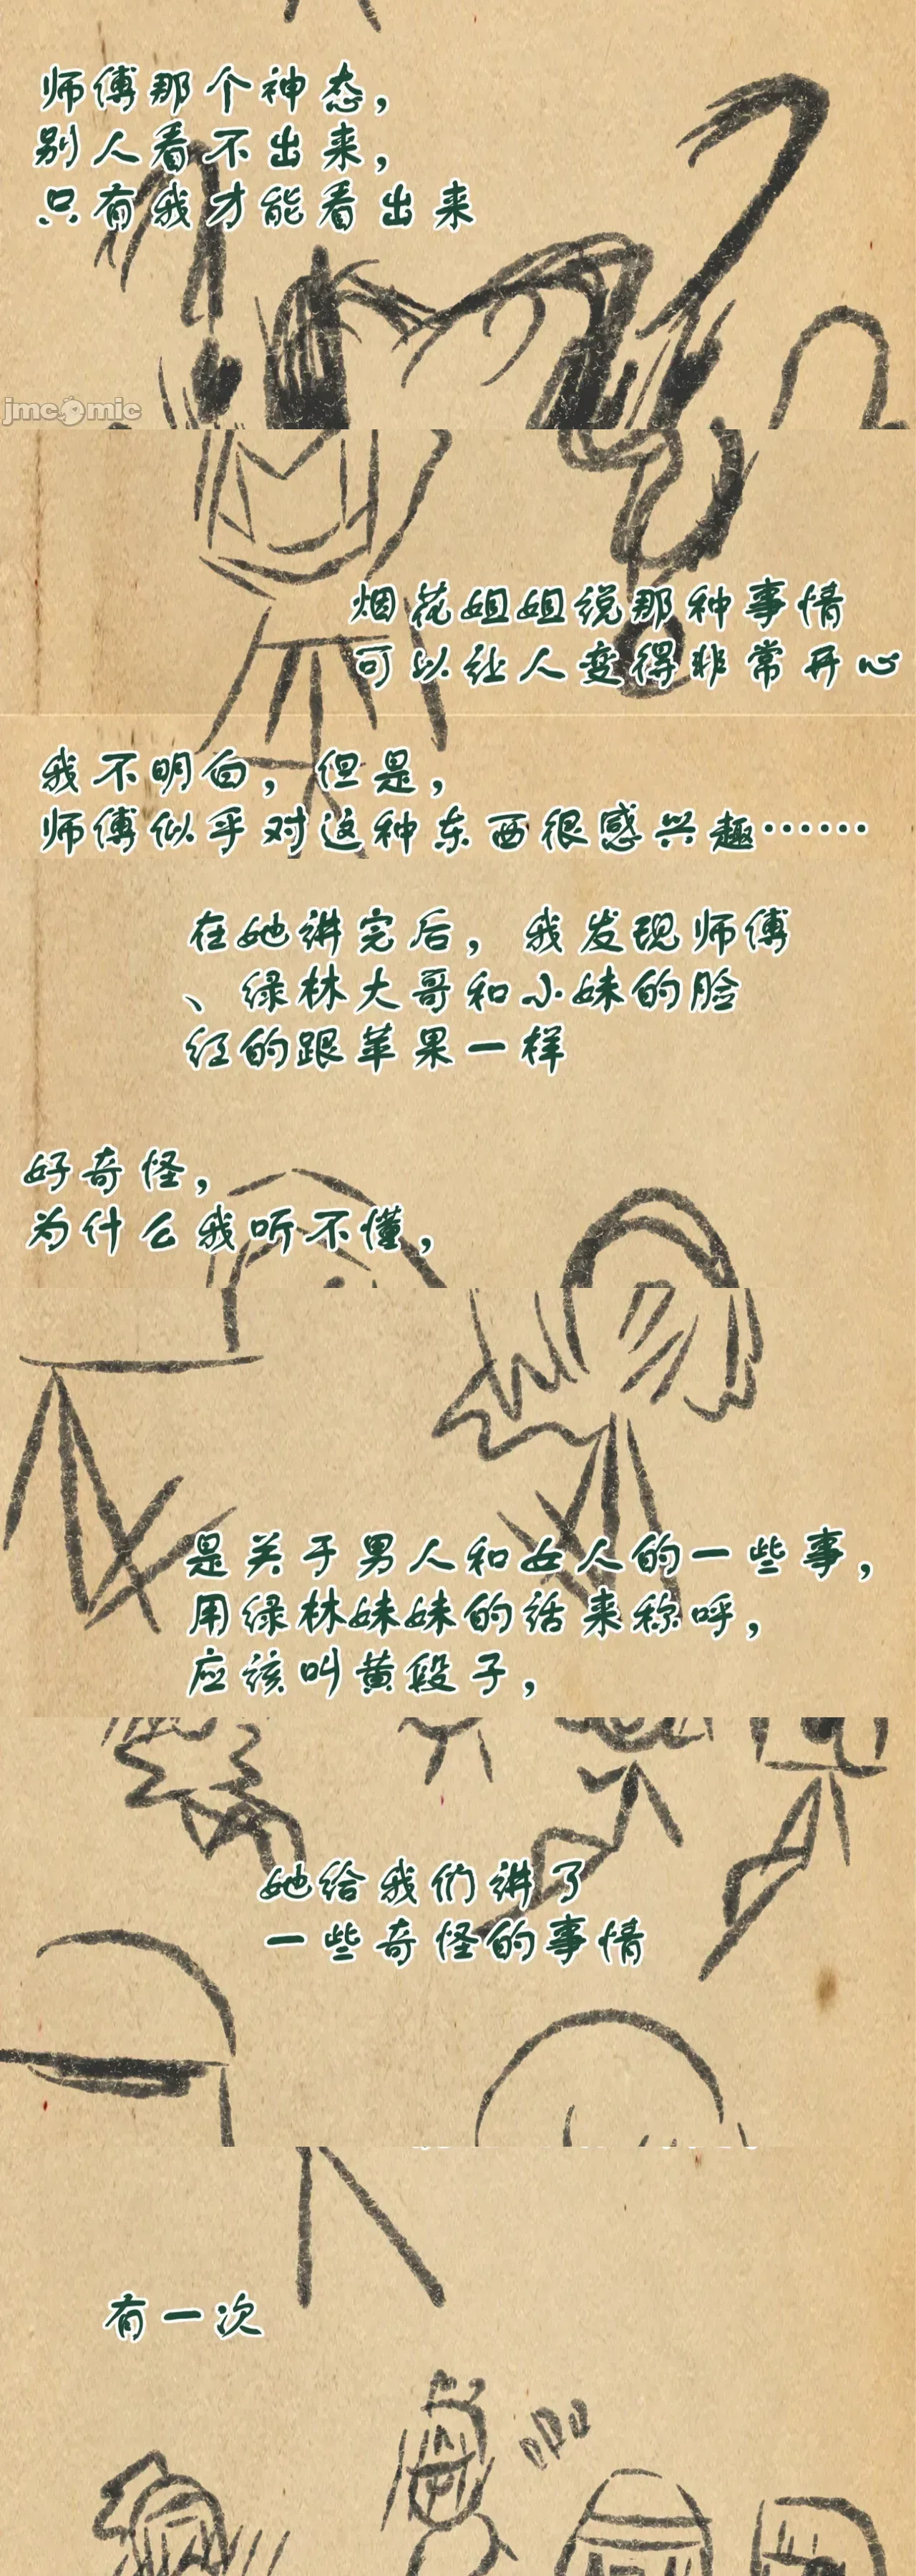 师傅那个神态，
别人看不出来，
只有我才能看出来
jmcomic
烟花姐姐说那种事情
可以让人变得非常开心
我不明白，但是，
师傅似乎对这种东西很感兴趣……
在她讲完后，我发现师傅
、绿林大哥和小妹的脸
红的跟苹果一样
好奇怪，
为什么我听不懂，
是关于男人和女人的一些事，
用绿林妹妹的话来称呼，
应该叫黄段子，
她给我们讲了
一些奇怪的事情
有一次